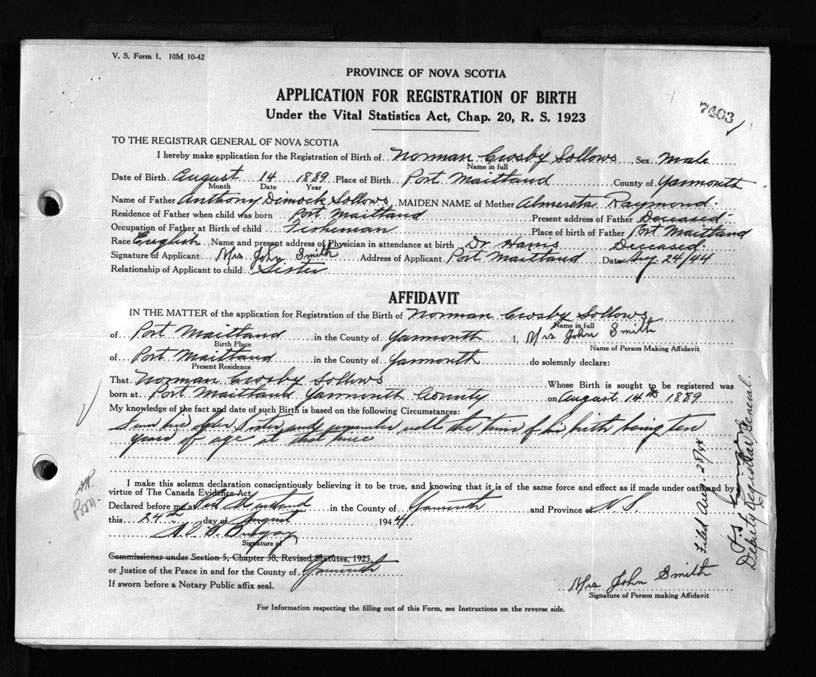 V. S. Form 1. 10M 10-42
PROVINCE OF NOVA SCOTIA
APPLICATION FOR REGISTRATION OF BIRTH
Under the Vital Statistics Act, Chap. 20, R. S. 1923
7403
TO THE REGISTRAR GENERAL OF NOVA SCOTIA
I hereby make application for the Registration of Birth of Norman Crosby Sollows Sex Male
Name in full
Date of Birth August 14 1889 Place of Birth Port Maitland County of Yarmouth
Month Date Year
Name of Father Anthony Dimock Sollows MAIDEN NAME of Mother Almereta Raymond
Residence of Father when child was born Port Maitland Present address of Father Deceased
Occupation of Father at Birth of child Fisherman Place of birth of Father Port Maitland
Race English Name and present address of Physician in attendance at birth Dr Harris Deceased
Signature of Applicant Mrs. John Smith Address of Applicant Port Maitland Date Aug 24/44
Relationship of Applicant to child Sister
AFFIDAVIT
IN THE MATTER of the application for Registration of the Birth of Norman Crosby Sollows
Name in full
of Port Maitland in the County of Yarmouth I, Mrs John Smith
Birth Place Name of Person Making Affidavit
of Port Maitland in the County of Yarmouth do solemnly declare:
Present Residence
That Norman Crosby Sollows Whose Birth is sought to be registered was
born at Port Maitland Yarmouth County on August 14th 1889
My knowledge of the fact and date of such Birth is based on the following Circumstances:
I am his older Sister and remember well the time of his birth being ten
years of age at that time
I make this solemn declaration conscientiously believing it to be true, and knowing that it is of the same force and effect as if made under oath and by
virtue of The Canada Evidence Act
Declared before me at Port Maitland in the County of Yarmouth and Province of N. S.
this 24th day of August 1944
Signature of
Commissioner under Section 5, Chapter 38, Revised Statutes, 1923
or Justice of the Peace in and for the County of Yarmouth
If sworn before a Notary Public affix seal.
Mrs John Smith
Signature of Person making Affidavit
For Information respecting the filling out of this Form, see Instructions on the reverse side.
Filed Aug 28/44
Deputy Registrar General.